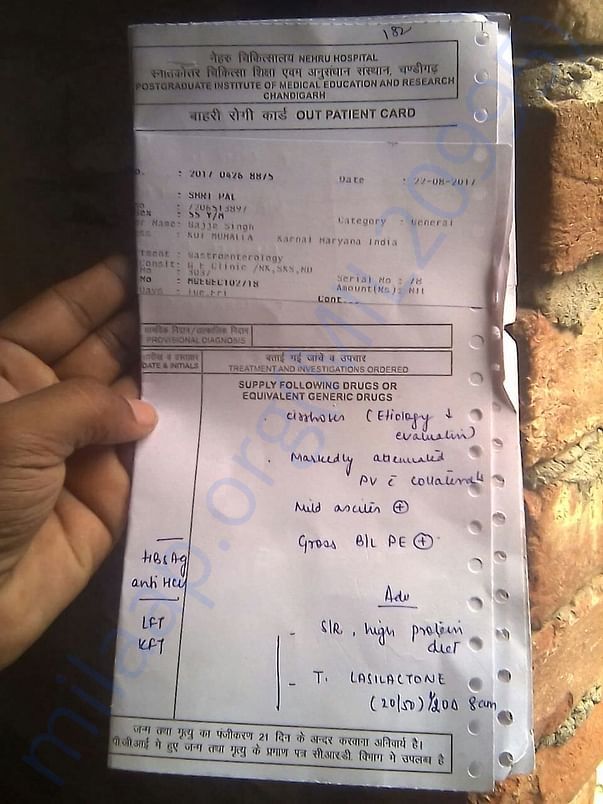 182
नेहरु चिकित्सालय NEHRU HOSPITAL
स्नातकोत्तर चिकित्सा शिक्षा एवम अनुसंधान संस्थान, चण्डीगढ़
POSTGRADUATE INSTITUTE OF MEDICAL EDUCATION AND RESEARCH
CHANDIGARH
बाहरी रोगी कार्ड OUT PATIENT CARD
: 2017 0426 8875 Date : 22-08-2017
: SHRI PAL
: 7206513897
Sex : 55 Y/M Category : General
Name: Singh
: KOT MUHALLA Karnal Haryana India
: Gastroenterology
: G E Clinic /NK,SKS,ND
: 3037 Serial No : 78
No : Amount(Rs): Nil
Days : Tue,Fri
Cont...
PROVISIONAL DIAGNOSIS
DATE & INITIALS
बताई गई जांचे व उपचार
TREATMENT AND INVESTIGATIONS ORDERED
SUPPLY FOLLOWING DRUGS OR
EQUIVALENT GENERIC DRUGS
(Etiology ↓
evaluation)
Markedly attenuated
PV c collaterals
Mild ascites +
Gross B/L PE +
HBsAg
anti HCV
LFT
KFT
Adv
- S/R, high protein
diet
- T. LASILACTONE
(20/50) 8am
जन्म तथा मृत्यु का पंजीकरण 21 दिन के अन्दर करवाना अनिवार्य है।
पी.जी.आई मे हुए जन्म तथा मृत्यु के प्रमाण पत्र सी.आर.डी. विभाग मे उपलब्ध है
milaap.org